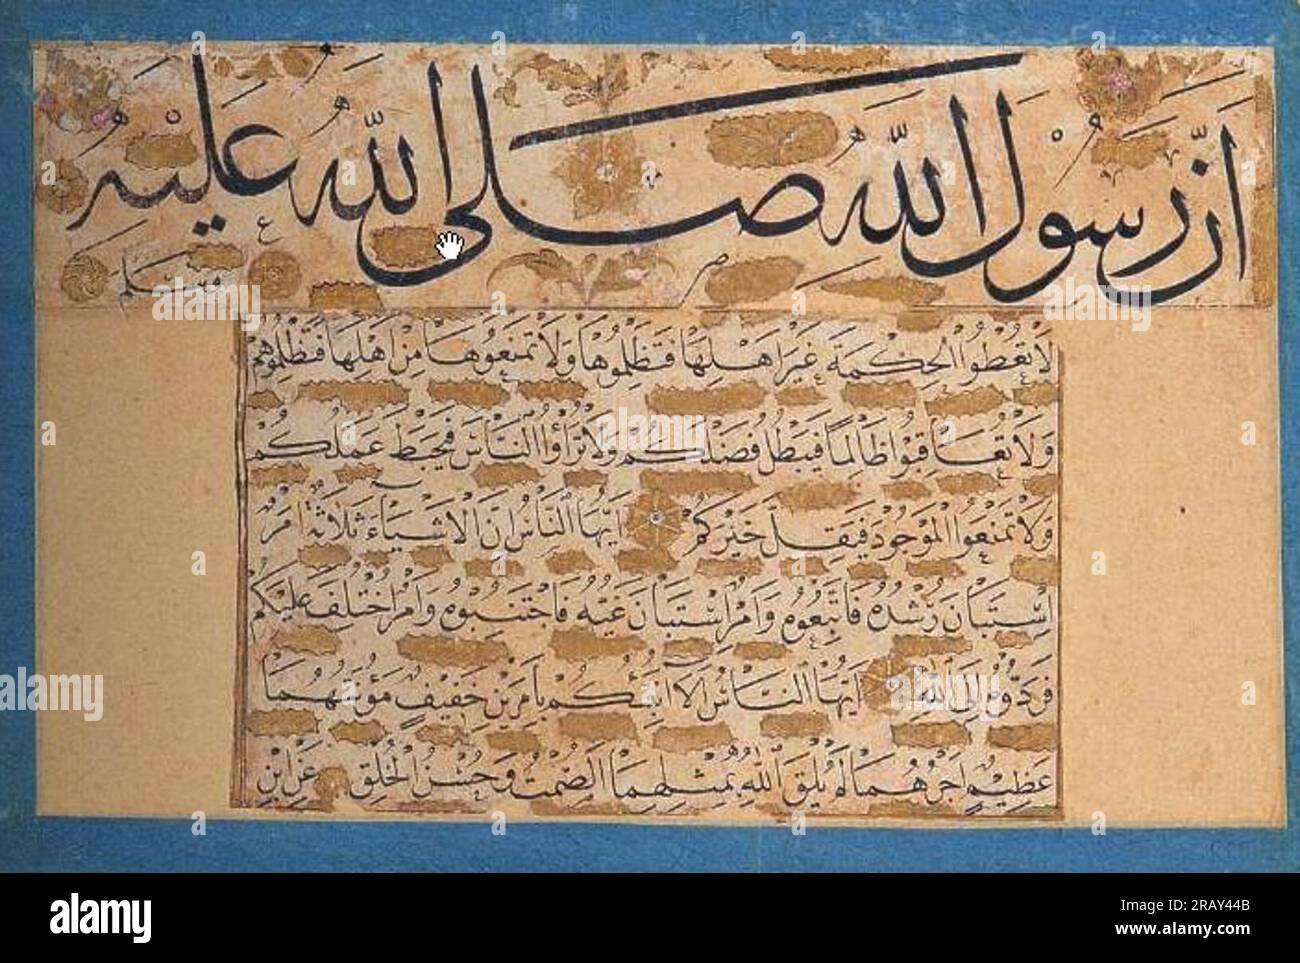 أَنَّ رَسُولَ اللهِ صَلَّى اللهُ عَلَيْهِ
وسلم
لَا تُعْطُوا الْحِكْمَةَ غَيْرَ أَهْلِهَا فَتَظْلِمُوهَا وَلَا تَمْنَعُوهَا مِنْ أَهْلِهَا فَتَظْلِمُوهُمْ
وَلَا تُعَاقِبُوا ظَالِمًا فَيَبْطُلَ فَضْلُكُمْ وَلَا تُرَاؤُا النَّاسَ فَيَحْبَطَ عَمَلُكُمْ
وَلَا تَمْنَعُوا الْمَوْجُودَ فَيَقِلَّ خَيْرُكُمْ أَيُّهَا النَّاسُ إِنَّ الْأَشْيَاءَ ثَلَاثَةٌ أَمْرٌ
اِسْتَبَانَ رُشْدُهُ فَاتَّبِعُوهُ وَأَمْرٌ اسْتَبَانَ غَيُّهُ فَاجْتَنِبُوهُ وَأَمْرٌ اخْتَلَفَ عَلَيْكُمْ
فَرُدُّوهُ إِلَى اللهِ أَيُّهَا النَّاسُ أَلَا أُنَبِّئُكُمْ بِأَمْرَيْنِ خَفِيفٌ مَؤُنَتُهُمَا
عَظِيمٌ أَجْرُهُمَا لَمْ يُلْقَ اللهُ بِمِثْلِهِمَا الصَّمْتُ وَحُسْنُ الْخُلُقِ عَنِ ابْنِ
alamy
alamy
Image ID: 2RAY44B
www.alamy.com